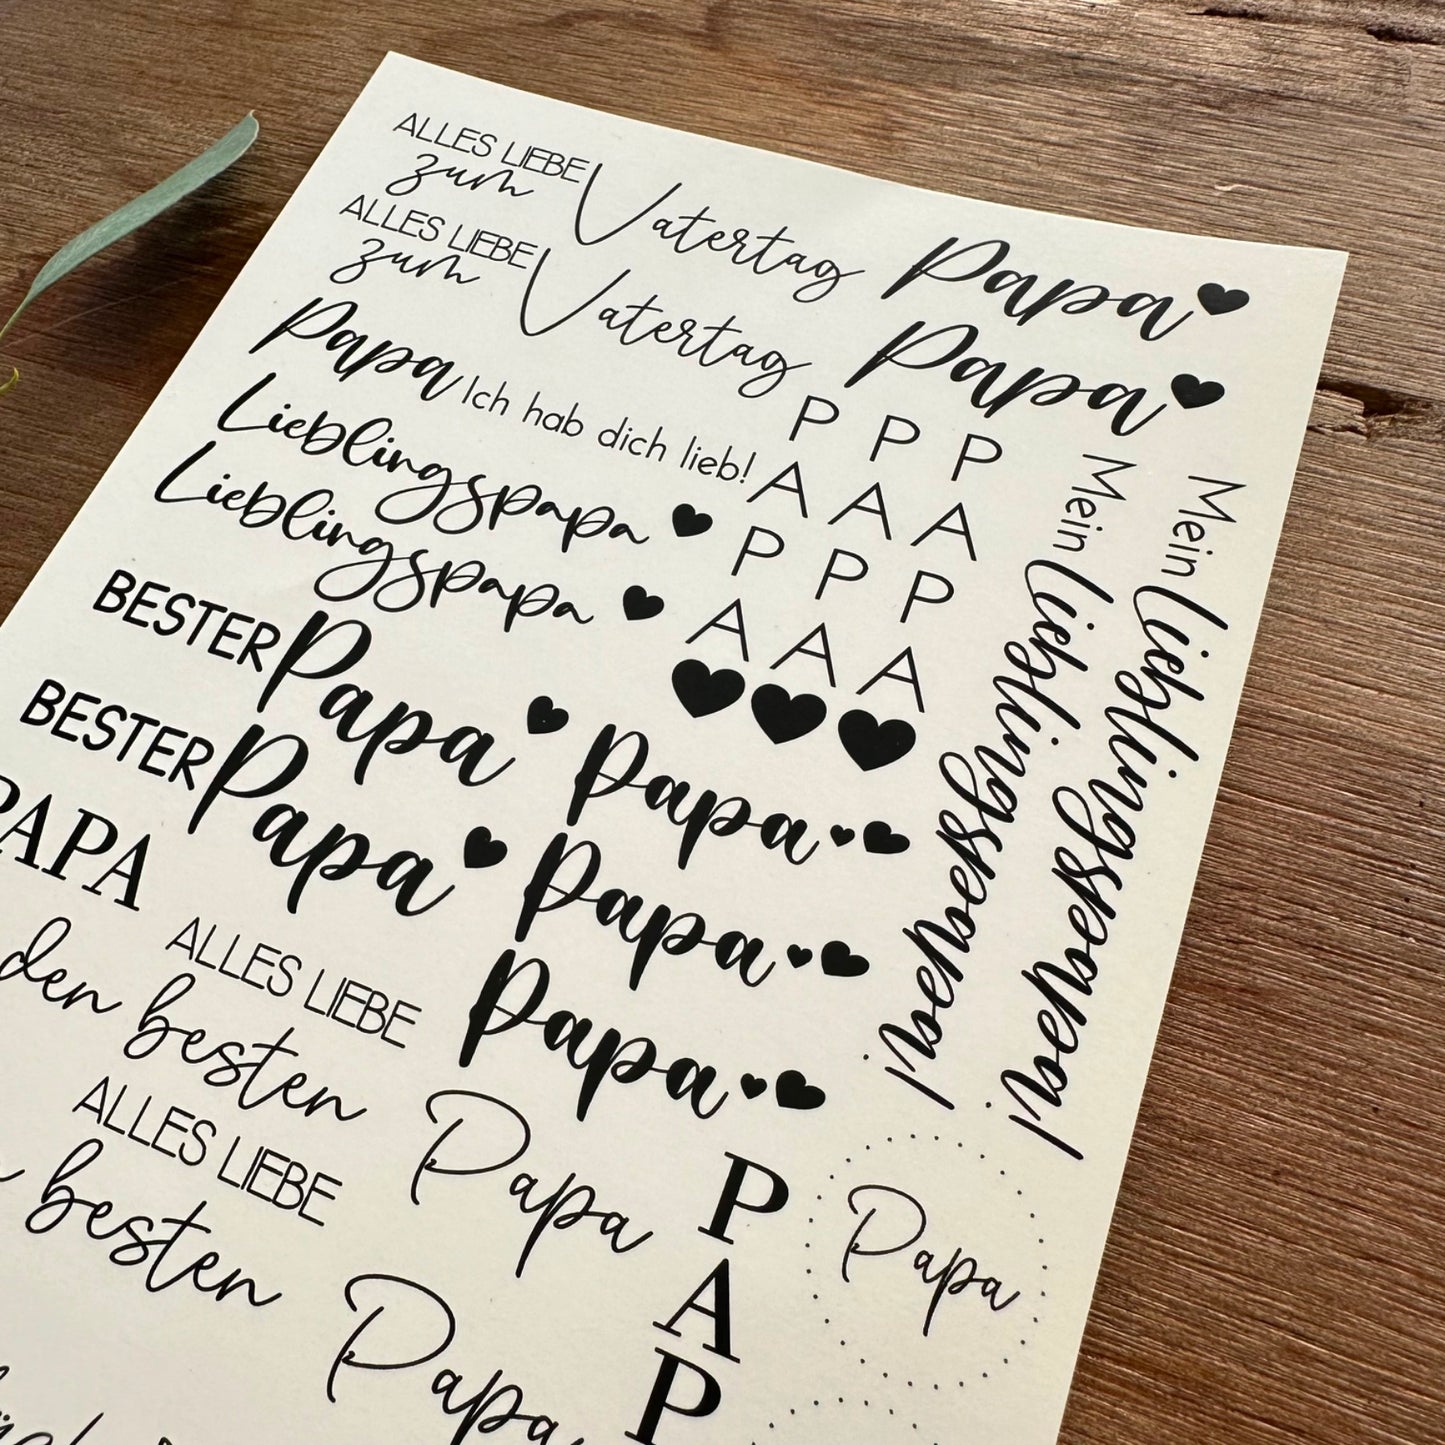 ALLES LIEBE
zum Vatertag
Papa
ALLES LIEBE
zum Vatertag
Papa
Papa Ich hab dich lieb!
Lieblingspapa
Lieblingspapa
PAPA
PAPA
PAPA
Mein Lieblingsmensch!
Mein Lieblingsmensch!
BESTER Papa
BESTER Papa
Papa
Papa
Papa
PAPA
ALLES LIEBE
den besten
Papa
ALLES LIEBE
besten
Papa
PAP
Papa